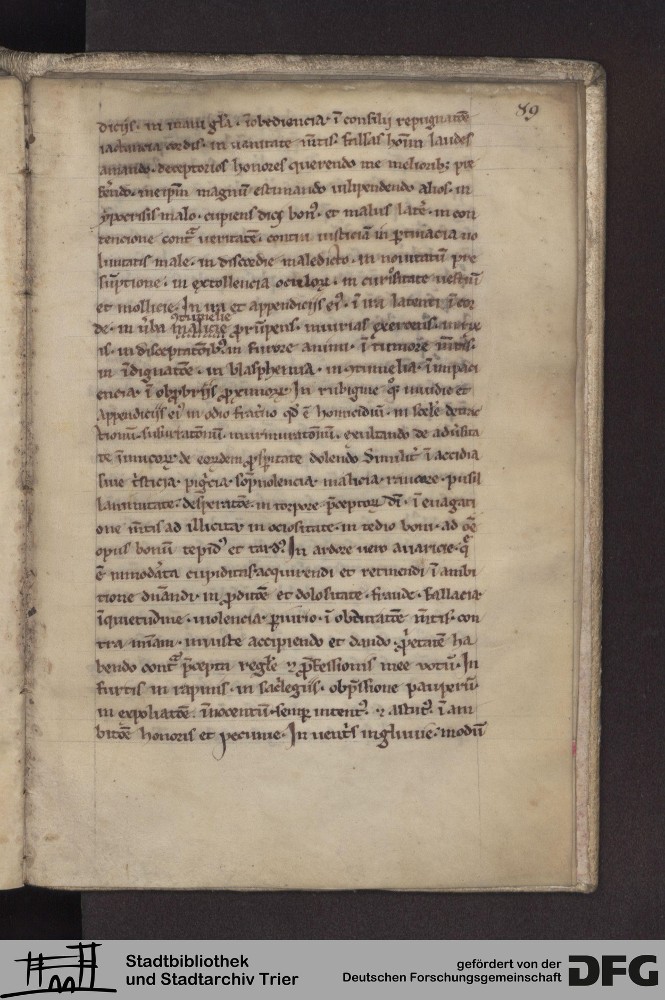 89
dicijs · in inani gl̄a · īobediencia · ī consilij repugnatōe
iactancia cordis · in uanitate m̄tis · fallas hōim laudes
amando · deceptorios honores querendo me meliorib; pre
ferendo · meip̄m magnū estimando uilipendendo alios · in
ẏpocrisis malo · cupiens dici bonꝰ · et malus lat̄e · in con
tencione cont͛ ueritatē · contra iusticiā in p̱tinacia uo
luntatis male · in discordie maledicto · in nouitatū pre
sūptione · in extollencia oculoꝝ · in curiositate uestiū
et mollicie · In ira et appendicijs eiꝰ · ī ira latenti ī cor
ↄtumelie
de · in ūba malicie prorūpens · iniurias exercens
is · in disceptatōib; in furore animi · ī tumore m̄tis ·
in īdignatōe · in blasphemia · in ↄtumelia · ī īpaci
encia · ī obprobrijs proximoꝝ · In rubigine inuidie et
appendicijs eiꝰ in odio fraterno qd̄ ē homicidiū · in scele detrac
tionū · susurratōnū murmuratōnū · exultando de aduersita
te īimicoꝝ de eoꝝdem prosperitate dolendo Similit̄ ī accidia
siue tristicia · pigricia · sōpnolencia · malicia · rancore · pusil
lanimitate · desperatōe · in torpore p̄ceptoꝝ dī · ī euagati
one m̄tis ad illicita · in ociositate · in tedio boni · ad oē
opus bonū tepidꝰ et tardꝰ In ardore uero auaricie · q̄
ē inmoderata cupiditas acquirendi et retinendi ī ambi
tione · in proditōe et dolositate · fraude · fallacia
īquietudine · uiolencia p̱iurio · ī obduratōe m̄tis · con
tra mīam · iniuste accipiendo et dando · p̱p̱etatē ha
bendo cont͛ p̄cepta regl̄e ⁊ professionis mee uotū · In
furtis in rapinis · in sacrilegiis · obp̄ssione pauperū
in expoliatōe · īnocentū · semp̱ intentꝰ · ⁊ astutꝰ · ī am
bitōe honoris et pecunie · In uentris ingluuie · modū
Stadtbibliothek
und Stadtarchiv Trier
gefördert von der
Deutschen Forschungsgemeinschaft
DFG